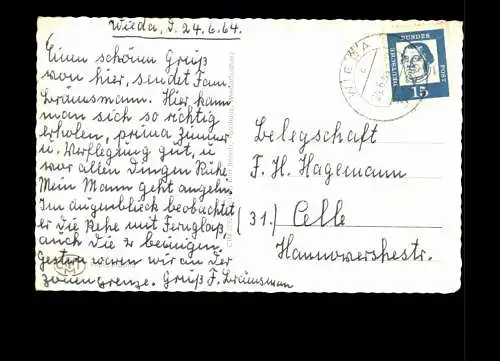 Wieda, d. 24.6.64.
Einen schönen Gruß
von hier, sendet Fam.
Bräunsmann. Hier kann
man sich so richtig
erholen, prima Zimmer
u. Verflegung gut, u
vor allen Dingen Ruhe
Mein Mann geht angeln.
Im augenblick beobachtet
er die Rehe mit Fernglaß,
auch die 2 beinigen.
Gestern waren wir an der
zonengrenze. Gruß F. Bräunsman
WIEDA
DEUTSCHE BUNDESPOST
15
Belegschaft
F. H. Hagemann
(31) Celle
Hannowershestr.